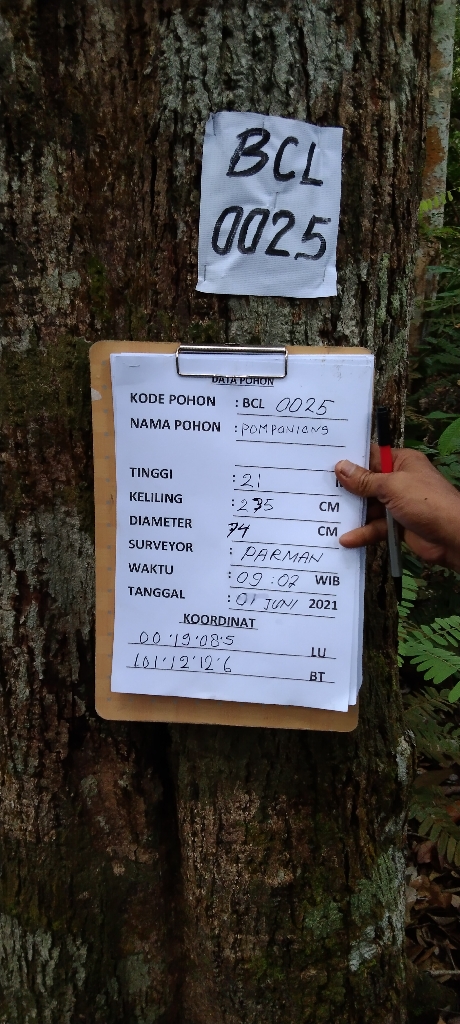 BCL
0025
DATA POHON
KODE POHON : BCL 0025
NAMA POHON : POMPONIONG
TINGGI : 21
KELILING : 235 CM
DIAMETER 74 CM
SURVEYOR : PARMAN
WAKTU : 09:02 WIB
TANGGAL : 01 JUNI 2021
KOORDINAT
00°19'08.5 LU
101°12'12.6 BT